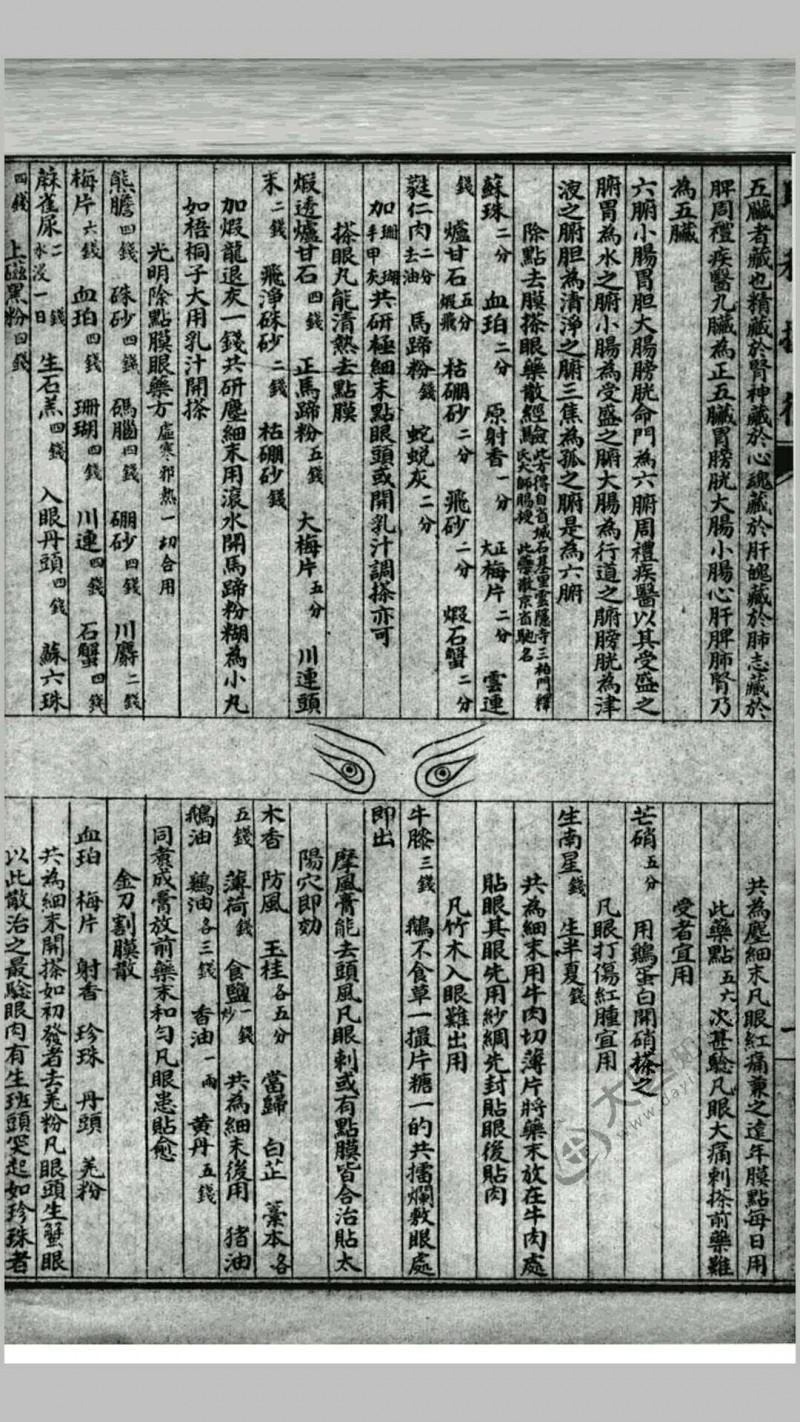 五臟者藏也精藏於腎神藏於心魂藏於肝魄藏於肺志藏於
脾周禮疾醫九臟為正五臟胃膀胱大腸小腸心肝脾肺腎乃
為五臟
六腑小腸胃胆大腸膀胱命門為六腑周禮疾醫以其受盛之
腑胃為水之腑小腸為受盛之腑大腸為行道之腑膀胱為津
液之腑胆為清淨之腑三焦為孤之腑是為六腑
除點去膜搽眼藥散經驗 此方得自省城石基里雲隱寺三柏門釋
氏大師賜授 此藥散京省馳名
蘇珠二分 血珀二分 原射香一分 正大梅片二分 雲連
錢 爐甘石五分煅飛 枯硼砂二分 飛砂二分 煅石蟹二分
蕤仁肉二分去油 馬蹄粉錢 蛇蛻灰二分
加珊瑚手甲灰共研極細末點眼頭或開乳汁調搽亦可
搽眼凡能清熱去點膜
煅透爐甘石四錢 正馬蹄粉五錢 大梅片五分 川連頭
末二錢 飛淨硃砂二錢 枯硼砂錢
加煅龍退灰一錢共研塵細末用滾水開馬蹄粉糊為小丸
如梧桐子大用乳汁開搽
光明除點膜眼藥方 虛寒邪熱一切合用
熊膽四錢 硃砂四錢 碼腦四錢 硼砂四錢 川麝二錢
梅片六錢 血珀四錢 珊瑚四錢 川連四錢 石蟹四錢
麻雀屎二錢水浸一日 生石羔四錢 入眼丹頭四錢 蘇六珠
四錢 上磁黑粉四錢
共為塵細末凡眼紅痛兼之遠年膜點每日用
此藥點五六次甚驗凡眼大痛刺搽前藥難
受者宜用
芒硝五分 用鷄蛋白開硝搽之
凡眼打傷紅腫宜用
生南星錢 生半夏錢
共為細末用牛肉切薄片將藥末放在牛肉處
貼眼其眼先用紗綢先封貼眼後貼肉
凡竹木入眼難出用
牛膝三錢 鵝不食草一撮片糖一的共擂爛敷眼處
即出
摩風膏能去頭風凡眼刺或有點膜皆合治貼太
陽穴即効
木香 防風 玉桂各五分 當歸 白芷 藁本各
五錢 薄荷錢 食鹽一錢炒 共為細末後用 猪油
鵝油 鷄油各三錢 香油一両 黄丹五錢
同煮成膏放前藥末和勻凡眼患貼愈
金刀割膜散
血珀 梅片 射香 珍珠 丹頭 羌粉
共為細末開搽如初發者去羌粉凡眼頭生蟹眼
以此散治之最驗眼肉有生班頭突起如珍珠者